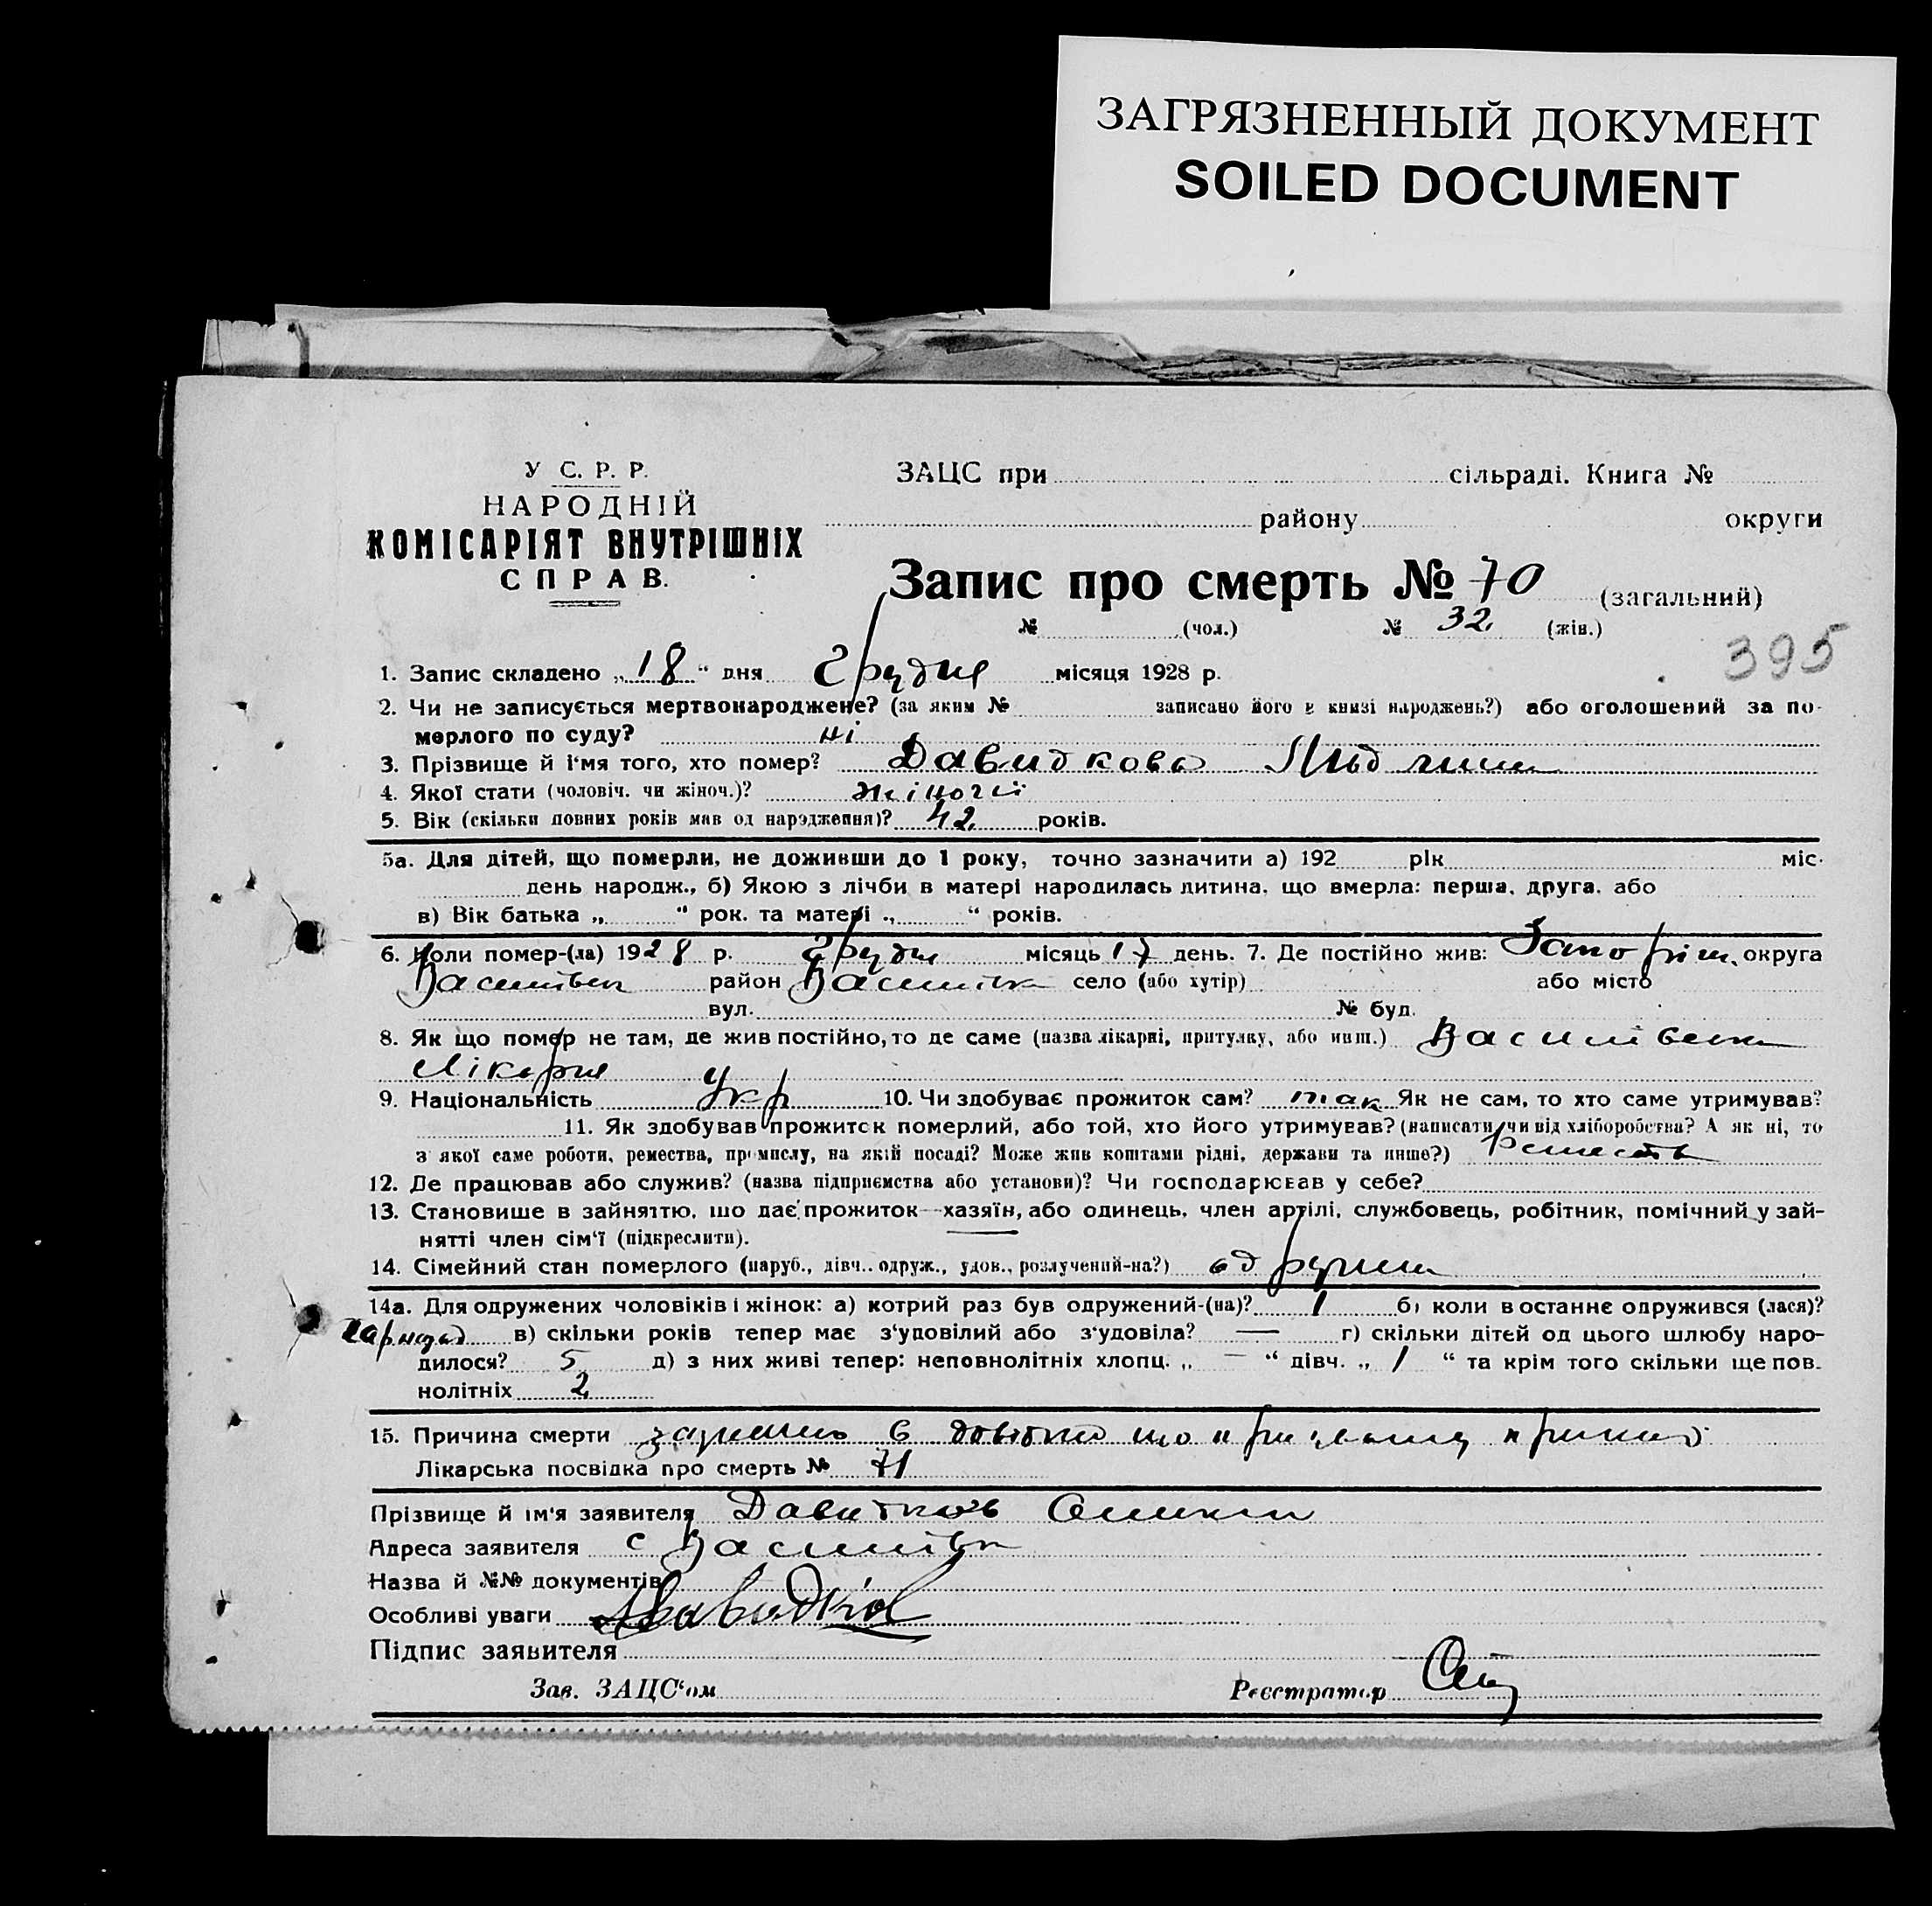 ЗАГРЯЗНЕННЫЙ ДОКУМЕНТ
SOILED DOCUMENT
У С. Р. Р.
НАРОДНІЙ
КОМІСАРІЯТ ВНУТРІШНІХ
СПРАВ.
ЗАЦС при сільраді. Книга №
району округи
Запис про смерть № 70 (загальний)
№ (чол.) № 32. (жін.)
395
1. Запис складено „18“ дня Грудня місяця 1928 р.
2. Чи не записується мертвонароджене? (за яким № записано його в книзі народжень?) або оголошений за по-
мерлого по суду? ні
3. Прізвище й ім'я того, хто помер? Давидкова
4. Якої стати (чоловіч. чи жіноч.)? жіночої
5. Вік (скільки повних років мав од народження)? 42 років.
5а. Для дітей, що померли, не доживши до 1 року, точно зазначити а) 192 рік міс.
день народж., б) Якою з лічби в матері народилась дитина, що вмерла: перша, друга, або
в) Вік батька „ “ рок. та матері „ “ років.
6. Коли помер-(ла) 1928 р. грудня місяць 17 день. 7. Де постійно жив: Запоріж. округа
Василівськ район Василівка село (або хутір) або місто
вул. № буд.
8. Як що помер не там, де жив постійно, то де саме (назва лікарні, притулку, або инш.) Василівська
лікарня
9. Національність Укр 10. Чи здобуває прожиток сам? так Як не сам, то хто саме утримував?
11. Як здобував прожиток померлий, або той, хто його утримував? (написати, чи від хліборобства? А як ні, то
з якої саме роботи, ремества, промислу, на якій посаді? Може жив коштами рідні, держави та инше?)
12. Де працював або служив? (назва підприємства або установи)? Чи господарював у себе?
13. Становише в зайняттю, що дає прожиток—хазяїн, або одинець, член артілі, службовець, робітник, помічний у зай-
нятті член сім'ї (підкреслити).
14. Сімейний стан померлого (паруб., дівч.. одруж., удов., розлучений-на?) одружена
14а. Для одружених чоловіків і жінок: а) котрий раз був одружений-(на)? 1 б) коли в останнє одружився (лася)?
в) скільки років тепер має з'удовілий або з'удовіла? — г) скільки дітей од цього шлюбу наро-
дилося? 5 д) з них живі тепер: неповнолітніх хлопц. „ — “ дівч. „ 1 “ та крім того скільки ще пов-
нолітніх 2
15. Причина смерти
Лікарська посвідка про смерть № 71
Прізвище й ім'я заявителя Давидков
Адреса заявителя с Василівка
Назва й №№ документів
Особливі уваги
Підпис заявителя
Зав. ЗАЦС'ом Реєстратор